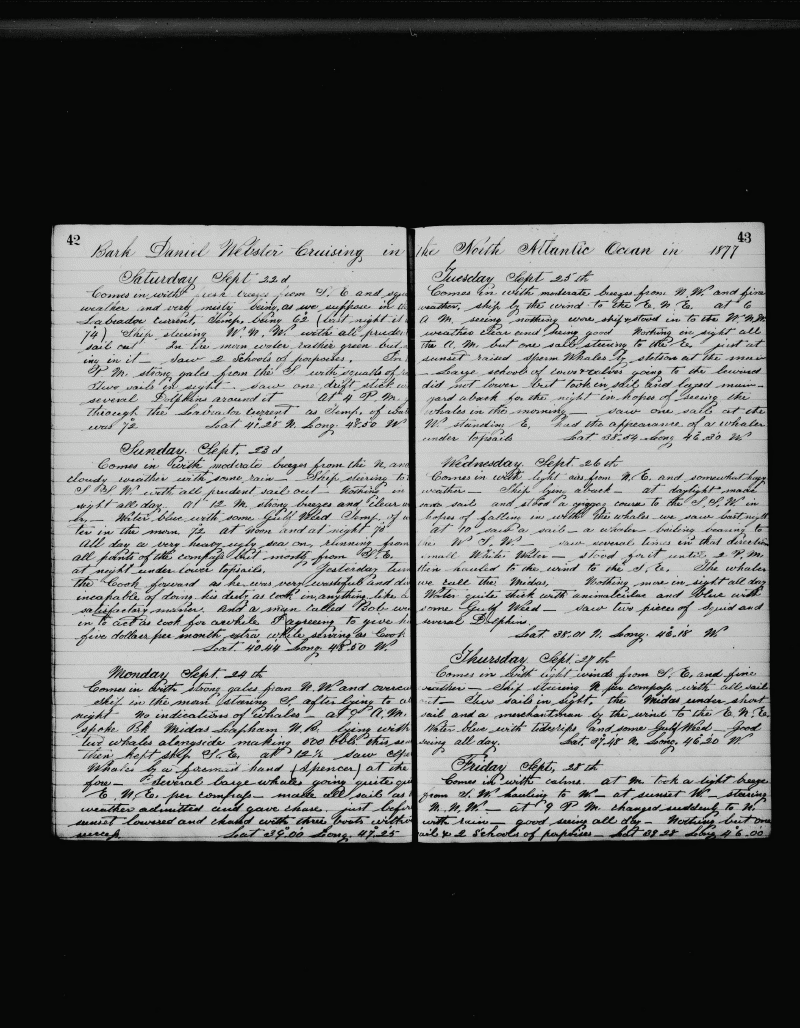 42
Bark Daniel Webster Cruising in
Saturday Sept 22d
Comes in with from S. E and
weather and very misty being as we suppose in
Labrador current, Temp. being 62 (last night it
74) Ship steering W. N. W. with all prudent
sail out In the morn water rather green but
ing in it - Saw 2 Schools of porpoises. In
P. M. strong gales from the S with squalls of
Two sails in sight - saw one drift stick
several Dolphins around it At 4 P. M.
through the Labrador current as Temp. of
was 72 Lat 41.25 N Long. 48.50 W
Sunday Sept. 23d
Comes in with moderate breezes from the N. and
cloudy weather with some rain - Ship steering to
S by W with all prudent sail out Nothing in
sight all day. at 12 M. strong breezes and clear
Water blue with some Gulf Weed Temp. of
ter in the morn 72 at noon and at night 70
All day a very heavy ugly sea on, running from
all points of the compass but mostly from S. E.
at night under lower topsails. Yesterday
the Cook forward as he was very wasteful and
incapable of doing his duty as cook in anything like a
satisfactory manner. And a man called Bob
in to act as cook for awhile I agreeing to give
five dollars per month extra while serving as Cook
Lat 40.44 Long. 48.50 W
Monday Sept. 24th
Comes in with strong gales from N. W. and
ship in the morn steering S, after lying to
night No indications of whales - at A. M.
spoke Bk Midas Leapham N. B. lying with
two whales alongside making 600 bbls this
then kept ship S. E. at 12½ saw
Whales by a foremast hand (Spencer) at the
fore - Several large whales going quite
E. N. E. per compass - made all sail as
weather admitted and gave chase. just before
sunset lowered and chased with three boats without
success Lat 39.00 Long. 47.25
43
the North Atlantic Ocean in 1877
Tuesday Sept 25th
Comes in with moderate breezes from N. W. and fine
weather, ship by the wind to the E. N. E. at 6
A M. seeing nothing wore ship & stood in to the W. N. W.
weather clear and seeing good Nothing in sight all
the A. M. but one sail steering to the E. just at
sunset raised Sperm Whales by station at the main
- Large schools of cows & calves going to the leeward
did not lower but took in sail and layed main-
yard aback for the night in hopes of seeing the
whales in the morning - saw one sail at the
W. standing E, had the appearance of a whaler
under topsails Lat 38.54 Long 46.30 W
Wednesday Sept. 26th
Comes in with light airs from N. E. and somewhat hazy
weather - Ship lying aback - at daylight made
sail and stood a zigzag course to the S. S. W. in
hopes of falling in with the whales we saw last night
at 10 saw a sail - a whaler boiling bearing to
the W S. W. - saw several times in that direction
small White Water - stood for it until 2 P. M.
then hauled to the wind to the S. E. The whaler
we call the Midas, Nothing more in sight all day
Water quite thick with animalculae and blue with
some Gulf Weed - saw two pieces of Squid and
several Dolphins.
Lat 38.01 N. Long. 46.18 W.
Thursday Sept. 27th
Comes in with light winds from S. E. and fine
weather - Ship steering N per compass with all sail
out - Two sails in sight, the Midas under short
sail and a merchantman by the wind to the E. N. E.
Water blue with tide rips and some Gulf Weed - good
seeing all day. Lat. 37.48 N. Long. 46.20 W.
Friday Sept. 28th
Comes in with calms. at M. took a light breeze
from S. W. hauling to W - at sunset W - steering
N. N. W. - at 9 P. M. changed suddenly to N.
with rain - good seeing all day - Nothing but one
sail & 2 Schools of porpoises - Lat 38.28 Long 46.00